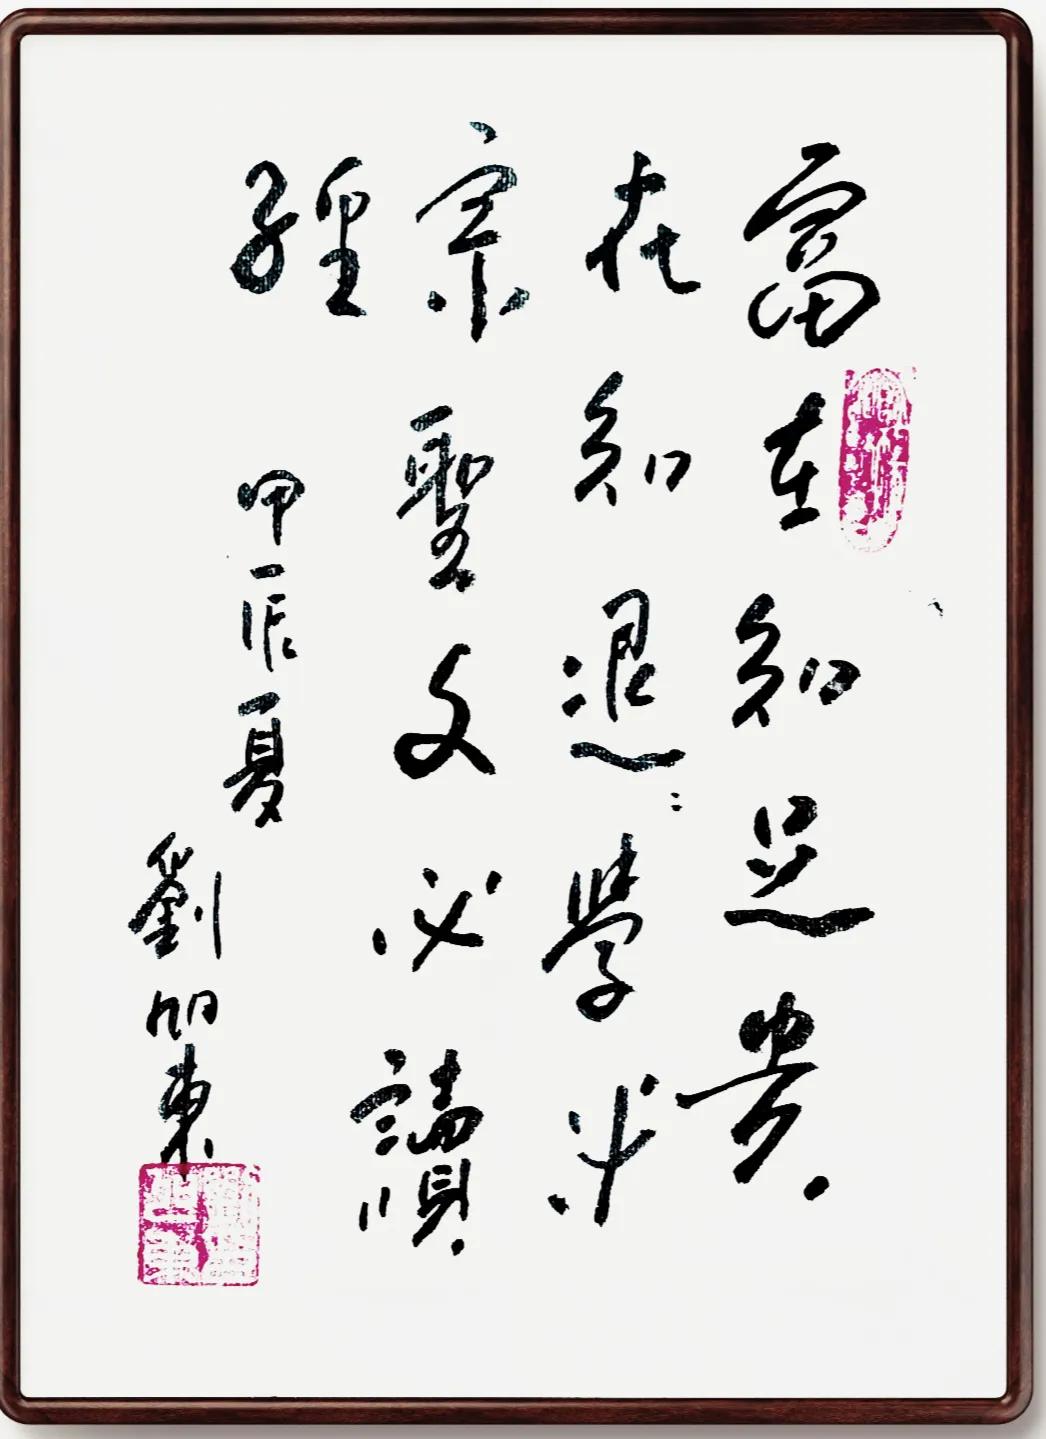 富在知足貴
在知退學求
宗聖文必讀
經
甲辰夏
劉旭東